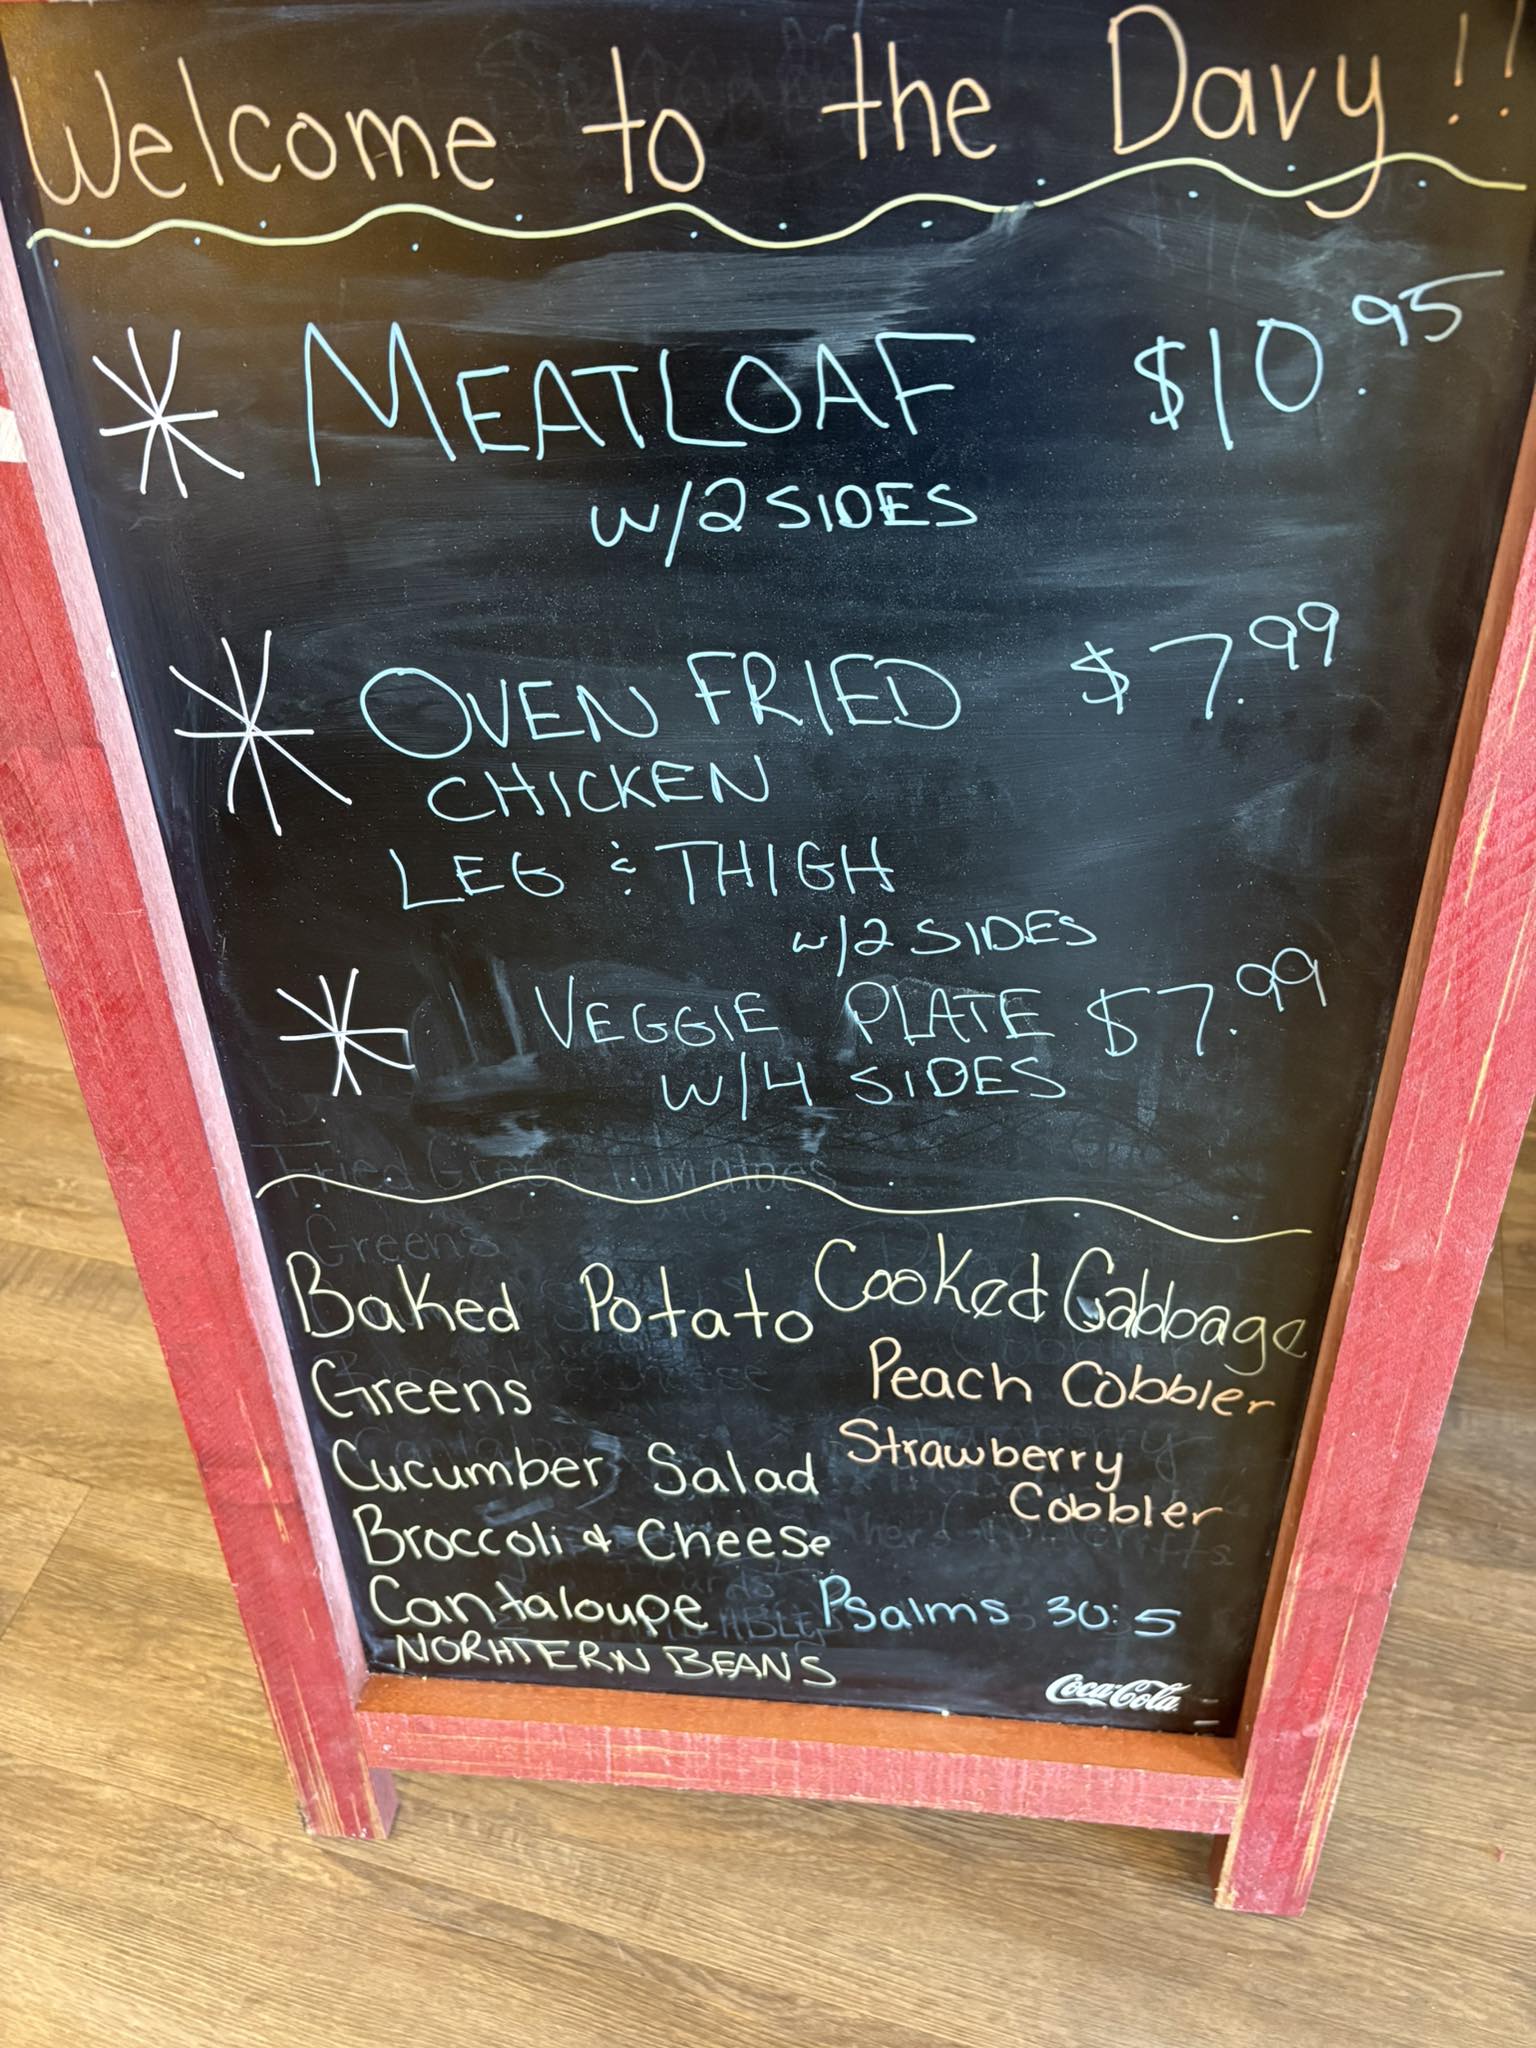 Welcome to the Davy!!
MEATLOAF $10.95
w/2 SIDES
OVEN FRIED $7.99
CHICKEN
LEG & THIGH
w/2 SIDES
VEGGIE PLATE $7.99
w/4 SIDES
Fried Green Tomatoes
Greens
Baked Potato Cooked Cabbage
Greens Peach Cobbler
Cucumber Salad Strawberry
Cobbler
Broccoli & Cheese
Cantaloupe Psalms 30:5
NORHTERN BEANS
Coca-Cola